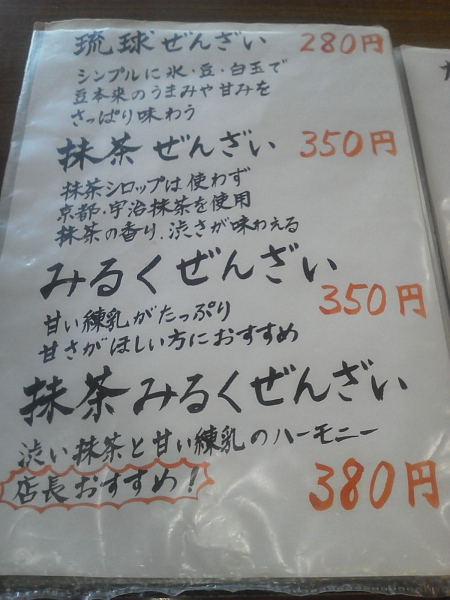 琉球ぜんざい 280円
シンプルに氷・豆・白玉で
豆本来のうまみや甘みを
さっぱり味わう
抹茶ぜんざい 350円
抹茶シロップは使わず
京都・宇治抹茶を使用
抹茶の香り、渋さが味わえる
みるくぜんざい
350円
甘い練乳がたっぷり
甘さがほしい方におすすめ
抹茶みるくぜんざい
渋い抹茶と甘い練乳のハーモニー
店長おすすめ!
380円